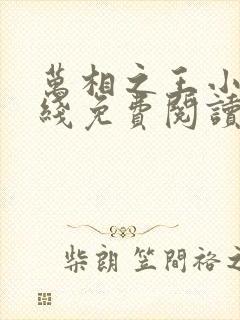 萬相之王小
綫免費閱讀
柴朗 笠間裕之